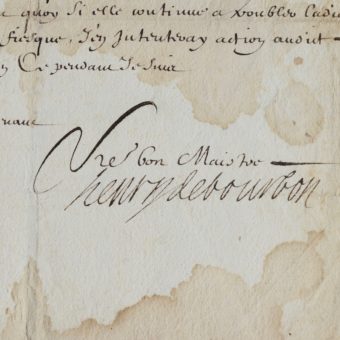 quoy si elle continue a troubler ladi
fresque, J'en Intenteray action audit
Cependant Je suis
Vre bon Maistre
henrydebourbon